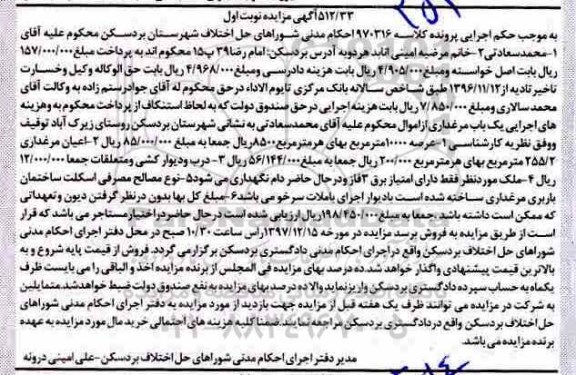 ۵۱۲/۳۳آگهی مزایده نوبت اول
به موجب حکم اجرایی پرونده کلاسه ۹۷۰۳۱۶ احکام مدنی شوراهای حل اختلاف شهرستان بردسکن محکوم علیه آقای
۱-محمدسعادتی۲-خانم مرضیه امینی اناید هردوبه آدرس بردسکن: امام رضا۳۹ پ۱۵ محکوم اند به پرداخت مبلغ۱۵۷/۰۰۰/۰۰۰
ریال بابت اصل خواسته ومبلغ۴/۹۰۵/۰۰۰ ریال بابت هزینه دادرسی ومبلغ۴/۹۶۸/۰۰۰ ریال بابت حق الوکاله وکیل وخسارت
تاخیر تادیه از ۱۳۹۶/۱۱/۱۲ طبق شاخص سالانه بانک مرکزی تایوم الاداء درحق محکوم له آقای جوادرستم زاده به وکالت آقای
محمد سالاری ومبلغ ۷/۸۵۰/۰۰۰ ریال بابت هزینه اجرایی در حق صندوق دولت که به لحاظ استنکاف از پرداخت محکوم به وهزینه
های اجرایی یک باب مرغداری ازاموال محکوم علیه آقای محمدسعادتی به نشانی شهرستان بردسکن روستای زیرک آباد توقیف
ووفق نظریه کارشناسی ۱-عرصه ۱۰۰۰۰مترمربع بهای هرمترمربع۸۵۰۰ریال جمعا به مبلغ ۸۵/۰۰۰/۰۰۰ ریال ۲-اعیان مرغداری
۲۵۵/۲ مترمربع بهای هرمترمربع ۲۰۰/۰۰۰ ریال جمعا به مبلغ۵۶/۱۴۴/۰۰۰ ریال ۳- درب ودیوار کشی ومتعلقات جمعا ۱۲/۰۰۰/۰۰۰
ریال ۴-ملک موردنظر فقط دارای امتیاز برق ۳فاز ودرحال حاضر دام نگهداری می شود۵-نوع مصالح مصرفی اسکلت ساختمان
باربری مرغداری ساخته شده است بادیوار اجرای باملات سرخو می باشد۶-مبلغ کل بها بدون درنظر گرفتن دیون وتعهداتی
که ممکن است داشته باشد، جمعا به مبلغ۱۹۸/۴۵۰/۰۰۰ریال ارزیابی شده است درحال حاضردر اختیار مستاجر می باشد که قرار
است از طریق مزایده به فروش برسد مزایده در مورخه ۱۳۹۷/۱۲/۱۵راس ساعت ۱۰/۳۰ صبح در محل دفتر اجرای احکام مدنی
شوراهای حل اختلاف بردسکن واقع دراجرای احکام مدنی دادگستری بردسکن برگزارمی گردد. فروش از قیمت پایه شروع و به
بالاترین قیمت پیشنهادی واگذار خواهد شد.ده درصد بهای مزایده فی المجلس از برنده مزایده اخذ و الباقی را می بایست ظرف
یکماه به حساب سپرده دادگستری بردسکن واریزنماید والا ده درصد بهای مزایده به نفع صندوق دولت ضبط خواهدشد.متمایلین
به شرکت در مزایده می توانند ظرف یک هفته قبل از مزایده جهت بازدید از مورد مزایده به دفتر اجرای احکام مدنی شوراهای
حل اختلاف بردسکن واقع در دادگستری بردسکن مراجعه نمایند.ضمناکلیه هزینه های احتمالی خرید مال مورد مزایده به عهده
برنده مزایده می باشد.
مدیر دفتر اجرای احکام مدنی شوراهای حل اختلاف بردسکن-علی امینی درونه